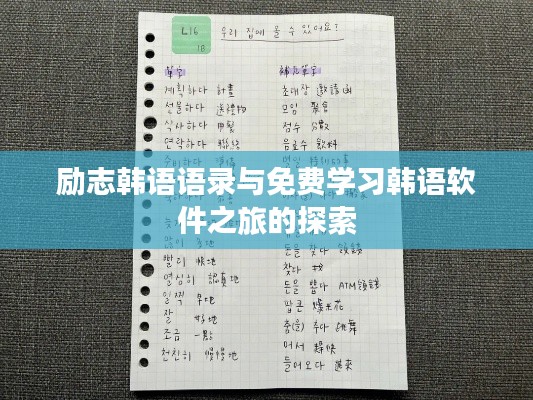 L16 우리 집에 올 수 있어요?
18
單字
계획하다 計畫
선물하다 送禮物
식사하다 用餐
연락하다 聯絡
빨리 快地
열심히 認真地
일찍 早地
잘 好地
조금 一點
천천히 慢慢地
補充單字
초대장 邀請函
모임 聚會
점수 分數
음료수 飲料
돈을 찾다 領錢
찾다 找
돈을 뽑다 ATM領錢
팝콘 爆米花
춤(을) 추다 跳舞
어서
들어오다 進來
励志韩语语录与免费学习韩语软
件之旅的探索